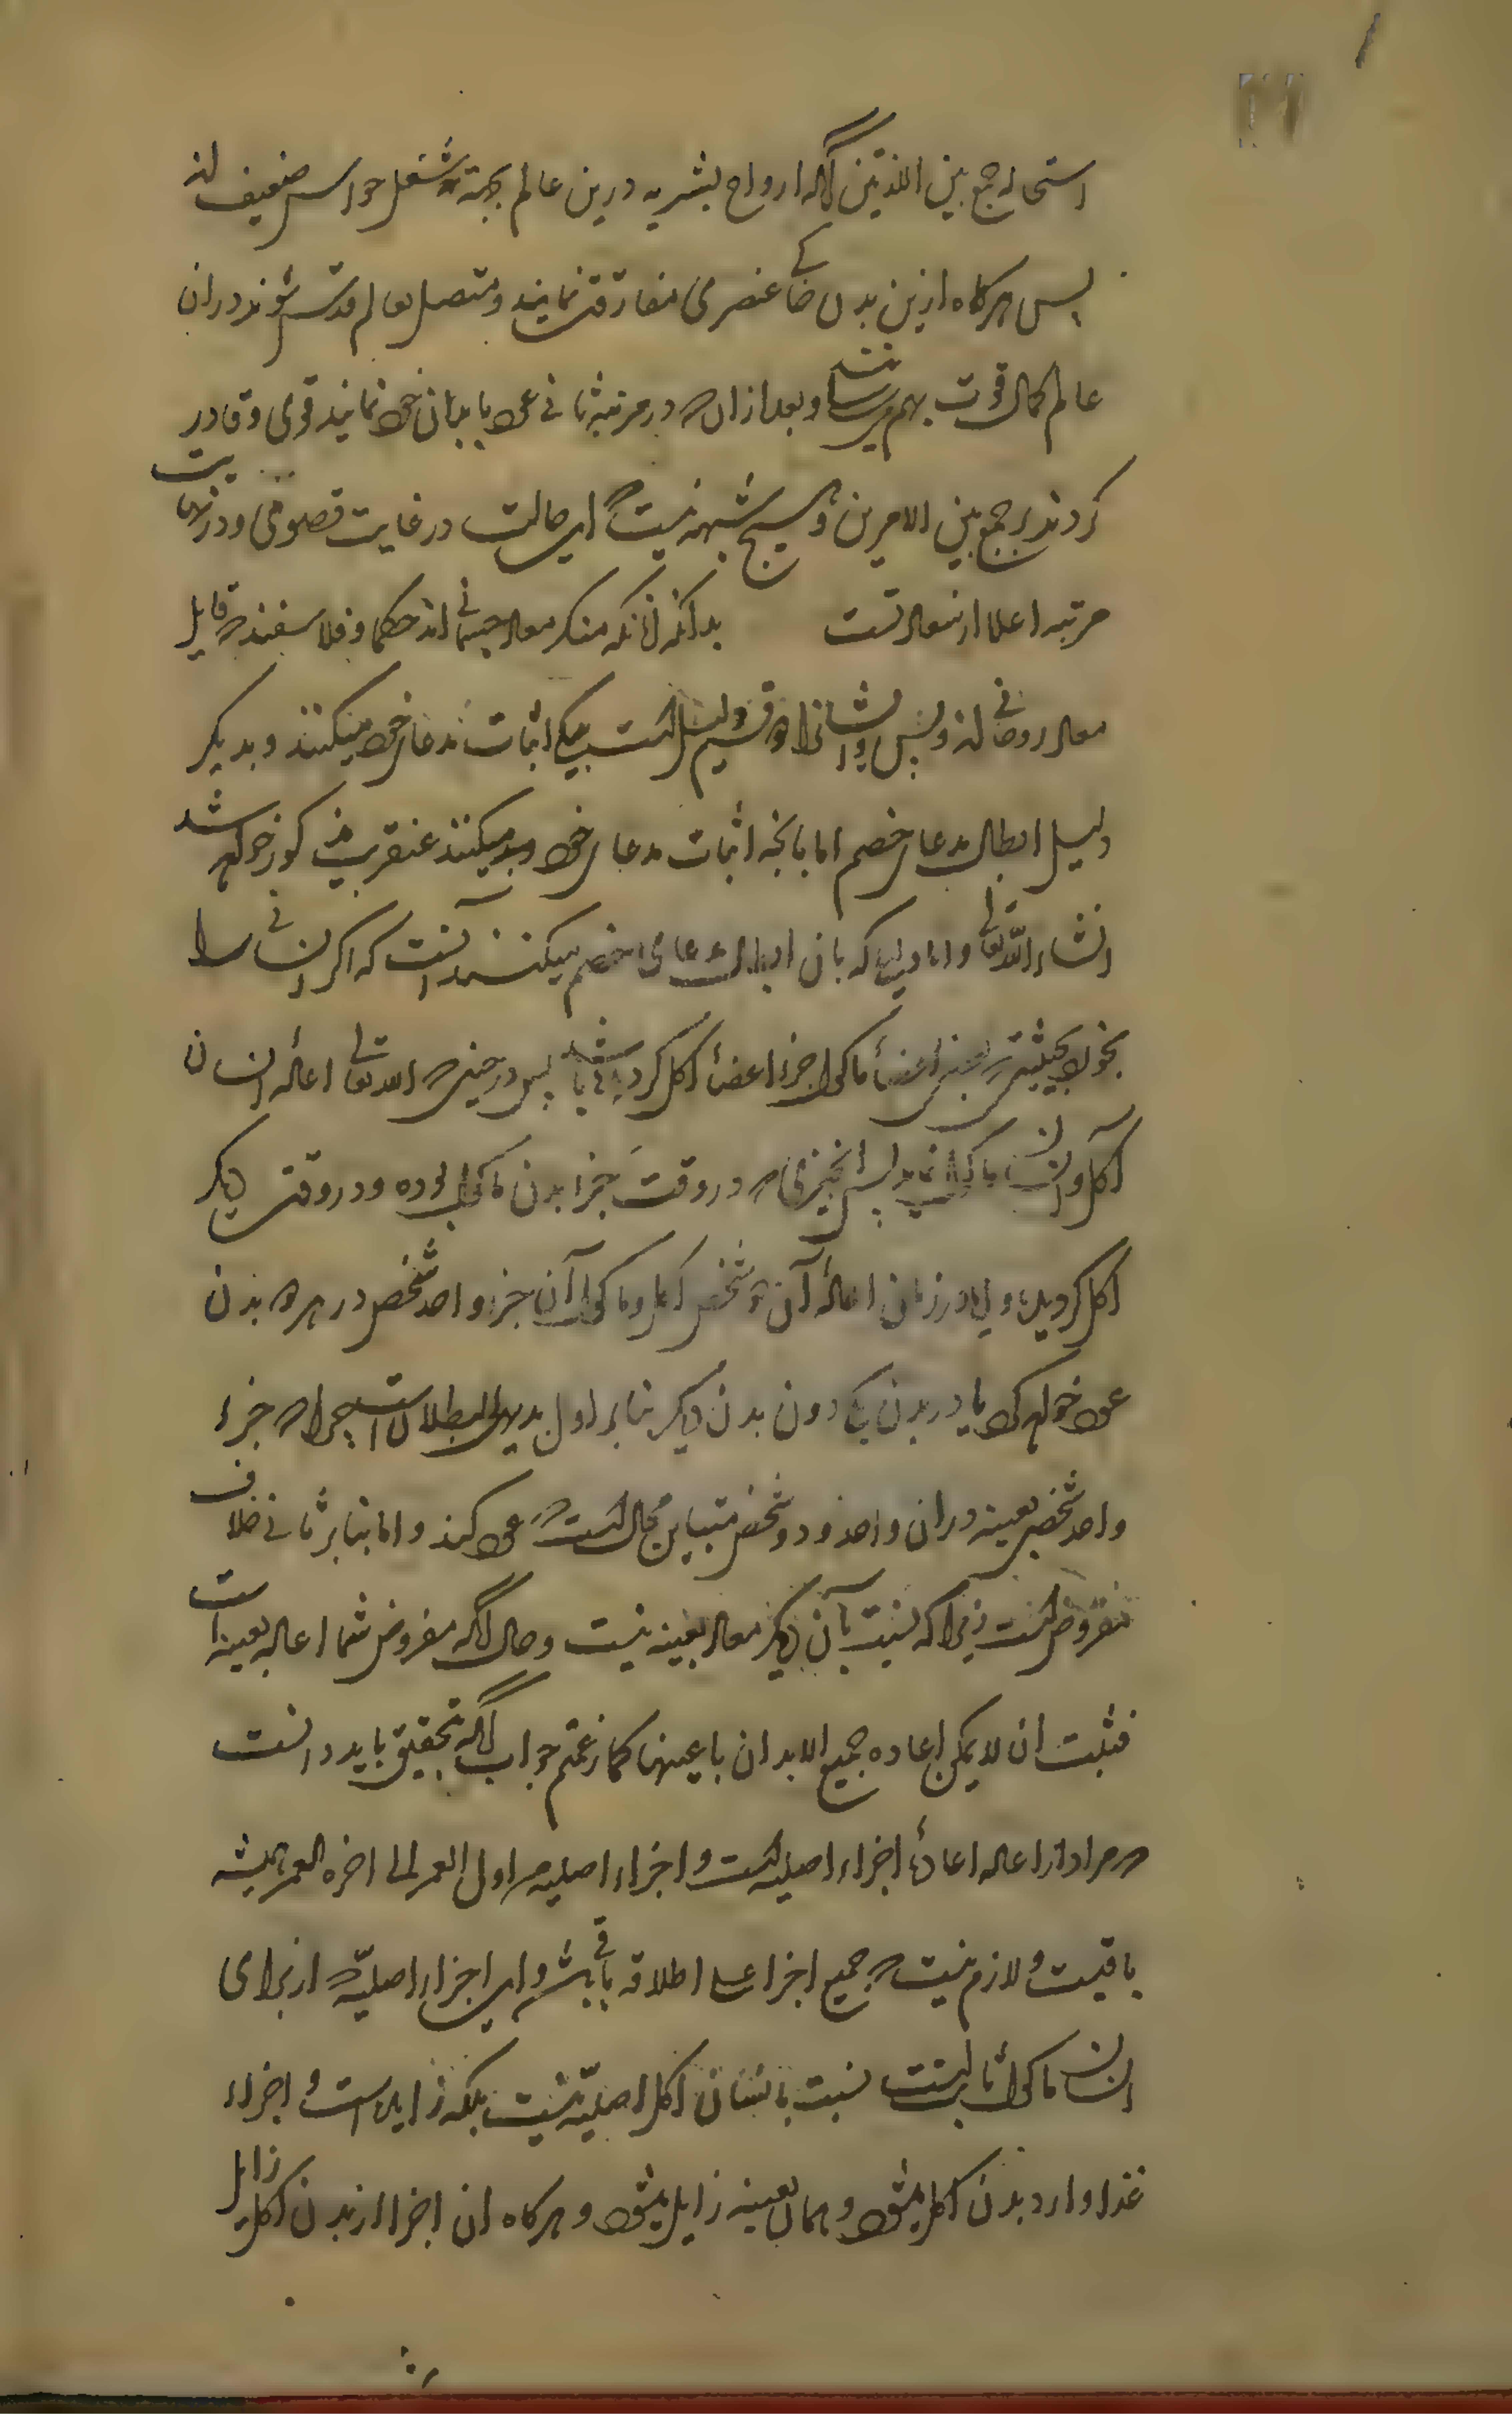 استحاله جمع بین اللذتین آنکه ارواح بشریه درین عالم بجهة شغل حواس ضعیف اند
پس هرکاه ازین بدن خاکی عنصری مفارقت نمایند و متصل بعالم قدس شوند دران
عالم کمال قوت بهم میرسانند و بعد ازان که در مرتبه ثانی عود بابدان خود نمایند قوی و قادر
کردند بر جمع بین الامرین و هیچ شبهه نیست که این حالت در غایت قصوی و در نهایت
مرتبه اعلا از سعادتست بدانکه آنانکه منکر معاد جسمانی اند حکما و فلاسفند که قایل
معاد روحانی اند و بس و ایشانرا دو قسم دلیل است بیکی اثبات مدعای خود میکنند و بدیکر
دلیل ابطال مدعای خصم اما بانچه اثبات مدعای خود میکنند عنقریب مذکور خواهد شد
انشاء الله تعالی و اما دلیلی که بان ابطال مدعای خصم میکنند آنست که اکر انسانی انسانی را
بخورد بحیثیتی که بعضی اعضاء ماکول جزء اعضاء اکل کردیده باشد پس در حینی که الله تعالی اعاده انسان
آکل و انسان ماکول نماید پس انچیزی که در وقت جزء بدن ماکول بوده و در وقت دیکر
اکل کردیده و در زمان اعاده آن دو شخص اکل و ماکول آن جزء واحد شخص در هر دو بدن
عود خواهد کرد یا در بدن یکی دون بدن دیکر بنابر اول بدیهی البطلان است چرا که جزء
واحد شخص بعینه دران واحد در دو شخص متباین محال است که عود کند و اما بنابر ثانی خلاف
مفروض است زیرا که نسبت بآن دیکر معاد بعینه نیست و حال آنکه مفروض شما اعاده بعینه است
فثبت ان لا یمکن اعاده جمیع الابدان باعینها کما زعمتم جواب آنکه بتحقیق باید دانست
که مراد از اعاده اعادهٔ اجزاء اصلیه است و اجزاء اصلیه من اول العمر الی اخره العمر همیشه
باقیست و لازم نیست که جمیع اجزا علی اطلاقه باقی باشد و این اجزاء اصلیّه که از برای
انسان ماکول ثابتست نسبت بانسان اکل اصلیّه نیست بلکه زایده است و اجزاء
غذا وارد بدن اکل میشود و همان بعینه زایل میشود و هرکاه ان اجزا از بدن اکل زایل